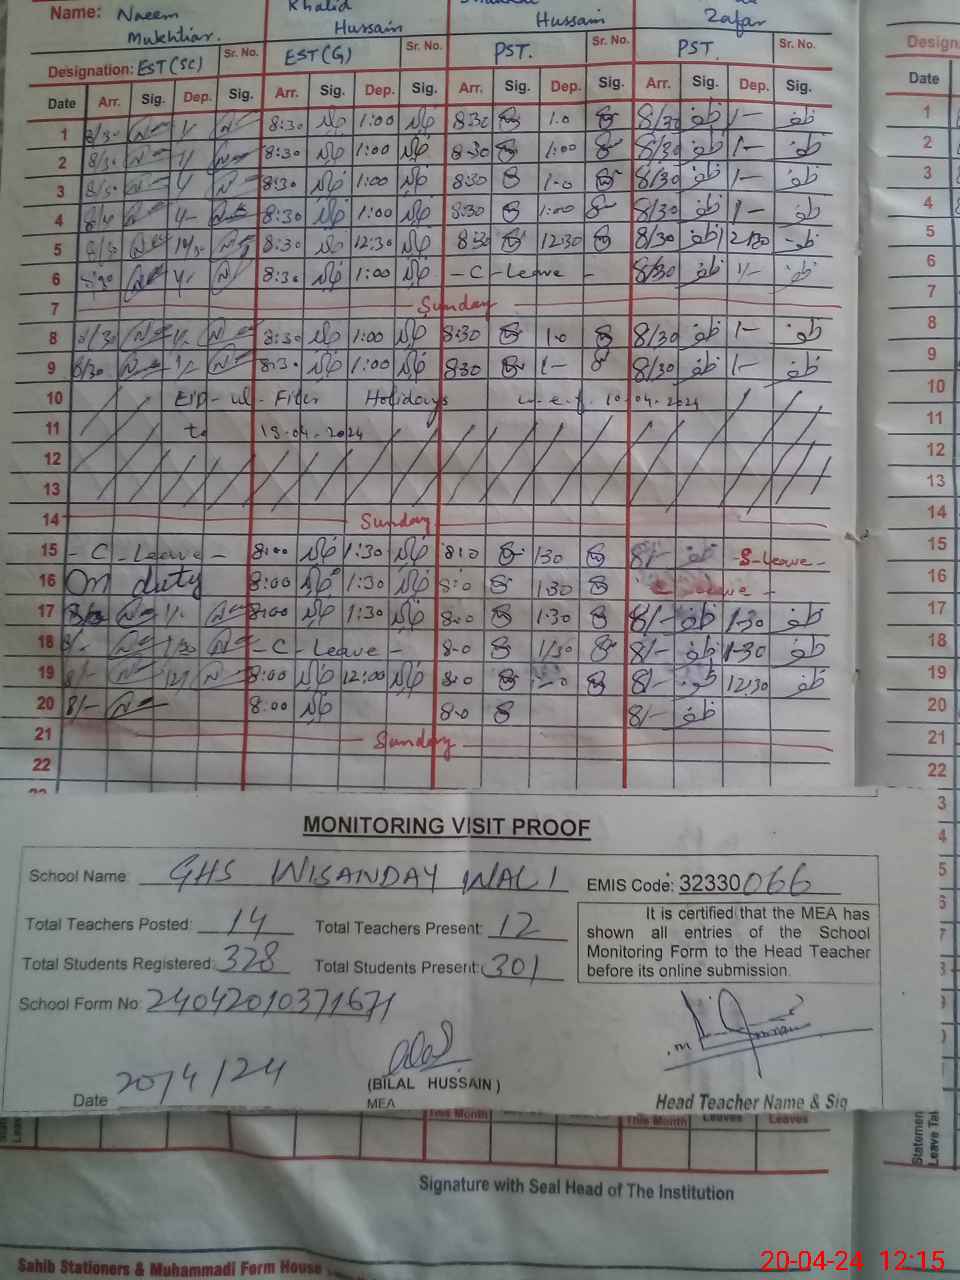 Name: Naeem Mukhtiar. Khalid Hussain Hussain Zafar
Designation: EST(SC) Sr. No. EST(G) Sr. No. PST. Sr. No. PST. Sr. No.
Date Arr. Sig. Dep. Sig. Arr. Sig. Dep. Sig. Arr. Sig. Dep. Sig. Arr. Sig. Dep. Sig.
1 8/30 1/- 8:30 1:00 8:30 1.0 8/30 ظفر 1- ظفر
2 8/30 1/ 8:30 1:00 8:30 1:00 8/30 ظفر 1- ظفر
3 8/30 1/ 8:30 1:00 8:30 1-0 8/30 ظفر 1- ظفر
4 1/- 8:30 1:00 8:30 1:00 8/30 ظفر 1- ظفر
5 8/30 8:30 12:30 8:30 12:30 8/30 ظفر 12/30 ظفر
6 8/30 1/- 8:30 1:00 - C - Leave - 8/30 ظفر 1/- ظفر
7 Sunday
8 8/30 1/- 8:30 1:00 8:30 1.0 8/30 ظفر 1- ظفر
9 8/30 1/- 8:30 1:00 830 1- 8/30 ظفر 1- ظفر
10 EID-ul-Fiter Holidays w.e.f. 10-04-2024
11 to 13-04-2024
12
13
14 Sunday
15 - C - Leave - 8:00 1:30 8:0 130 8/- ظفر -S-Leave-
16 On duty 8:00 1:30 8:0 1:30
17 1/- 8:00 1:30 8:0 1:30 8/- ظفر 1-30 ظفر
18 8/- 1/30 - C - Leave - 8-0 1/30 8/- ظفر 1-30 ظفر
19 8/- 12/- 8:00 12:00 8:0 8/- ظفر 12:30 ظفر
20 8/- 8:00 8-0 8/- ظفر
21 Sunday
22
MONITORING VISIT PROOF
School Name: GHS WISANDAY WALI EMIS Code: 32330066
Total Teachers Posted: 14 Total Teachers Present: 12
Total Students Registered: 328 Total Students Present: 301
It is certified that the MEA has
shown all entries of the School
Monitoring Form to the Head Teacher
before its online submission.
School Form No: 24042010371671
Date 20/4/24
(BILAL HUSSAIN)
MEA
Head Teacher Name & Sig
This Month This Month Leaves Leaves
Signature with Seal Head of The Institution
Sahib Stationers & Muhammadi Form House
Design
Date
1
2
3
4
5
6
7
8
9
10
11
12
13
14
15
16
17
18
19
20
21
22
Statemen
Leave Tal
20-04-24 12:15